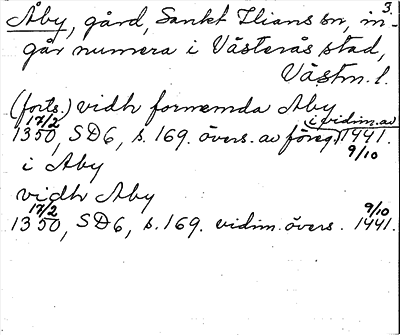 3.
Åby, gård, Sankt Ilians sn, in-
går numera i Västerås stad,
Västm. l.
(forts.) vidh fornemda Aby
17/2 i vidim. av
1350, SD6, s. 169. övers. av föreg. 1441.
9/10
i Aby
vidh Aby
17/2 9/10
1350, SD6, s. 169. vidim. övers. 1441.